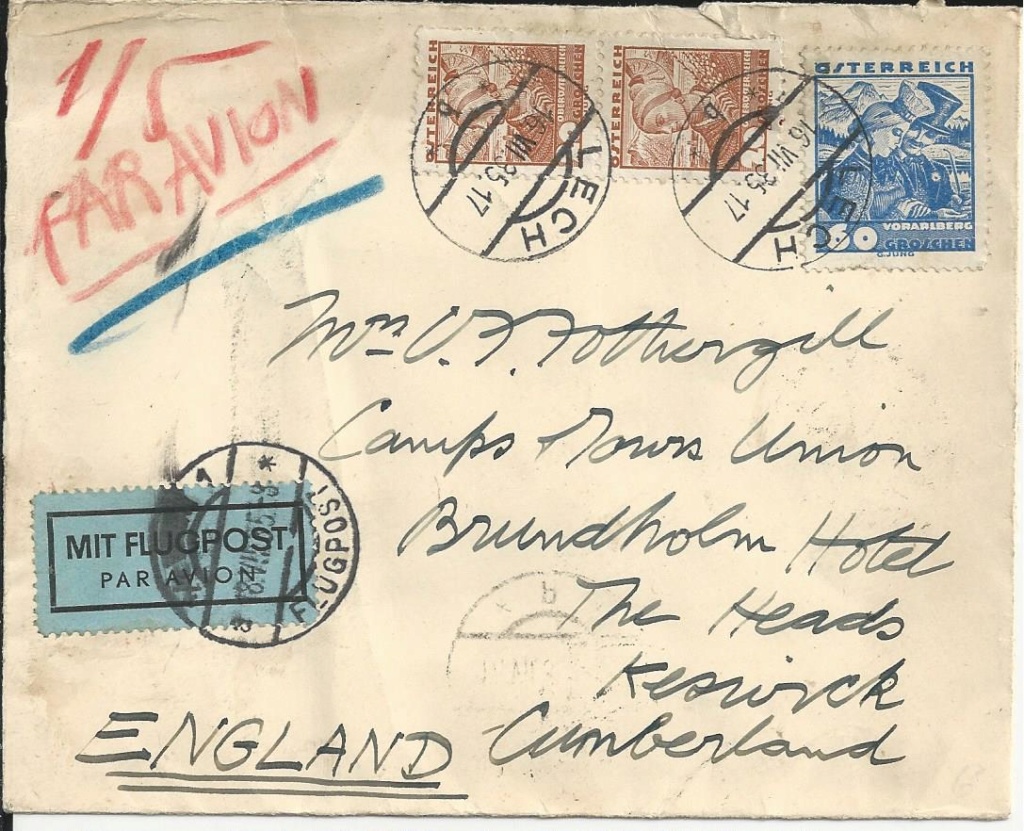 1/5
PAR AVION
ÖSTERREICH
OBERÖSTERREICH
ÖSTERREICH
ÖSTERREICH
VORARLBERG
60 GROSCHEN
G. JUNG
LECH
16.VII.35.17
LECH
16.VII.35.17
Mrs C. F. Fothergill
Camps & Tours Union
Brundholm Hotel
The Heads
Keswick
Cumberland
ENGLAND
MIT FLUGPOST
PAR AVION
FLUGPOST